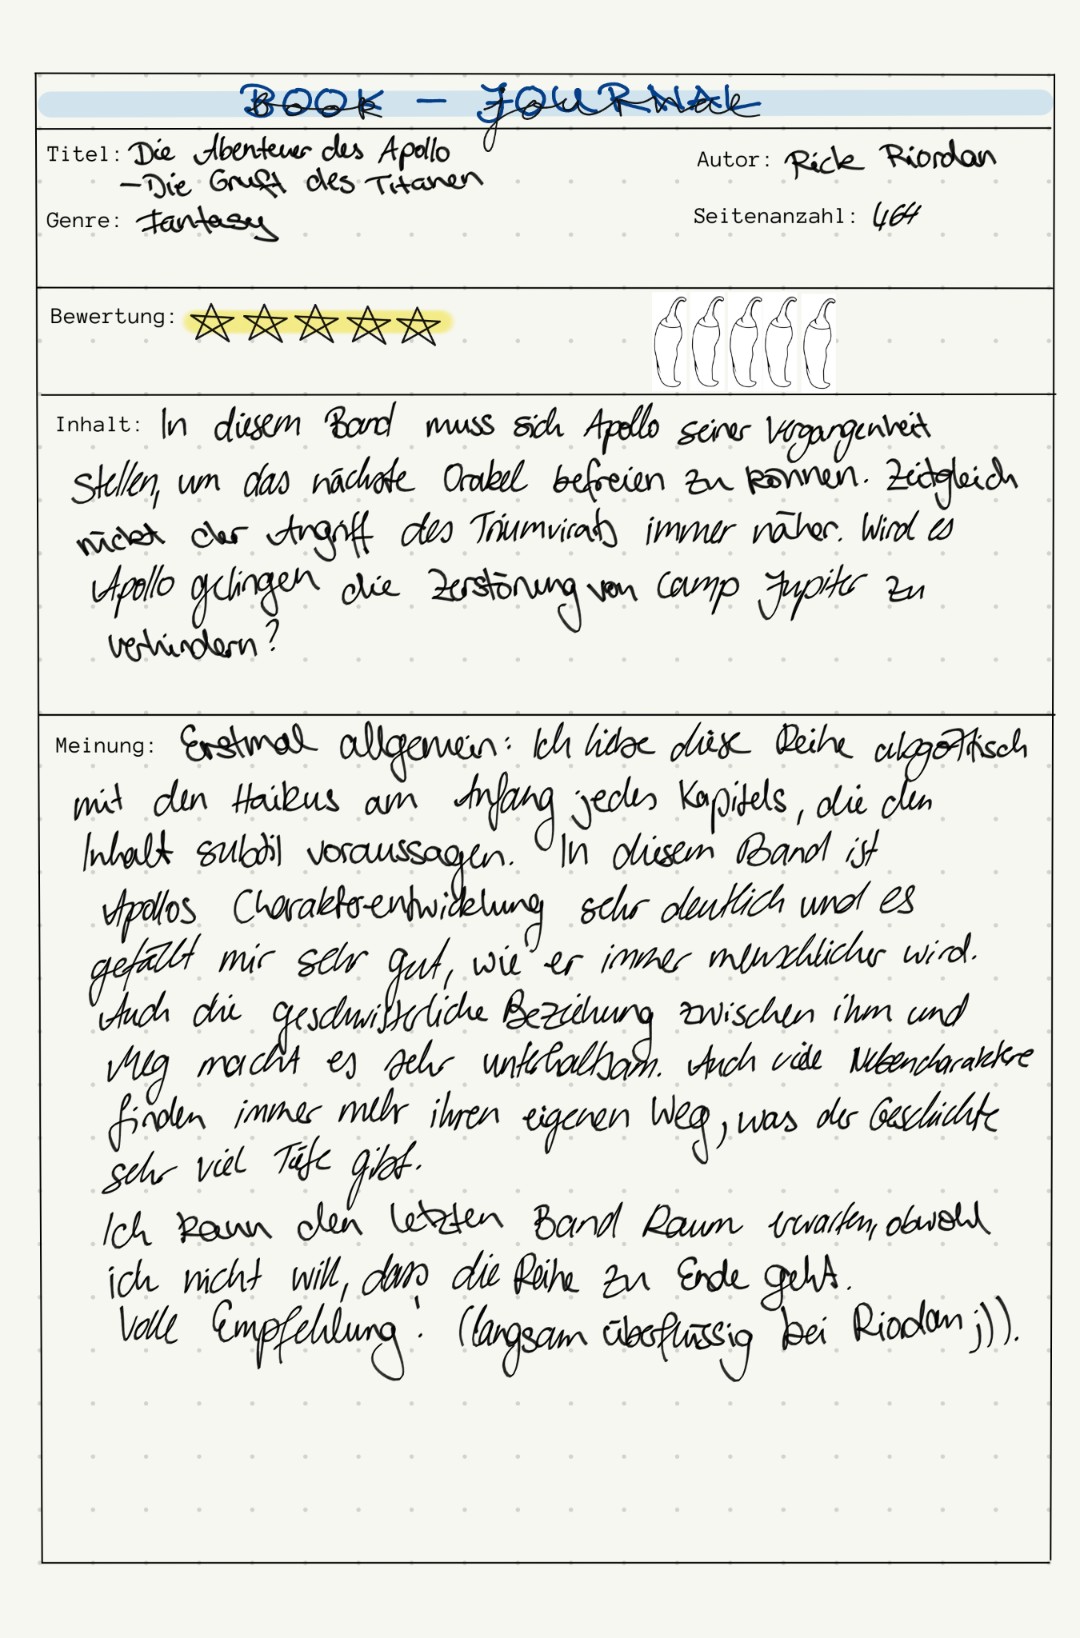 BOOK - JOURNAL
Titel: Die Abenteuer des Apollo
- Die Gruft des Titanen
Autor: Rick Riordan
Genre: Fantasy
Seitenanzahl: 464
Bewertung:
Inhalt: In diesem Band muss sich Apollo seiner Vergangenheit
stellen, um das nächste Orakel befreien zu können. Zeitgleich
rückt der Angriff des Triumvirats immer näher. Wird es
Apollo gelingen die Zerstörung von Camp Jupiter zu
verhindern?
Meinung: Erstmal allgemein: Ich liebe diese Reihe abgöttisch
mit den Haikus am Anfang jedes Kapitels, die den
Inhalt subtil voraussagen. In diesem Band ist
Apollos Charakterentwicklung sehr deutlich und es
gefällt mir sehr gut, wie er immer menschlicher wird.
Auch die geschwisterliche Beziehung zwischen ihm und
Meg macht es sehr unterhaltsam. Auch viele Nebencharaktere
finden immer mehr ihren eigenen Weg, was der Geschichte
sehr viel Tiefe gibt.
Ich kann den letzten Band kaum erwarten, obwohl
ich nicht will, dass die Reihe zu Ende geht.
Volle Empfehlung! (langsam überflüssig bei Riodan ;)).